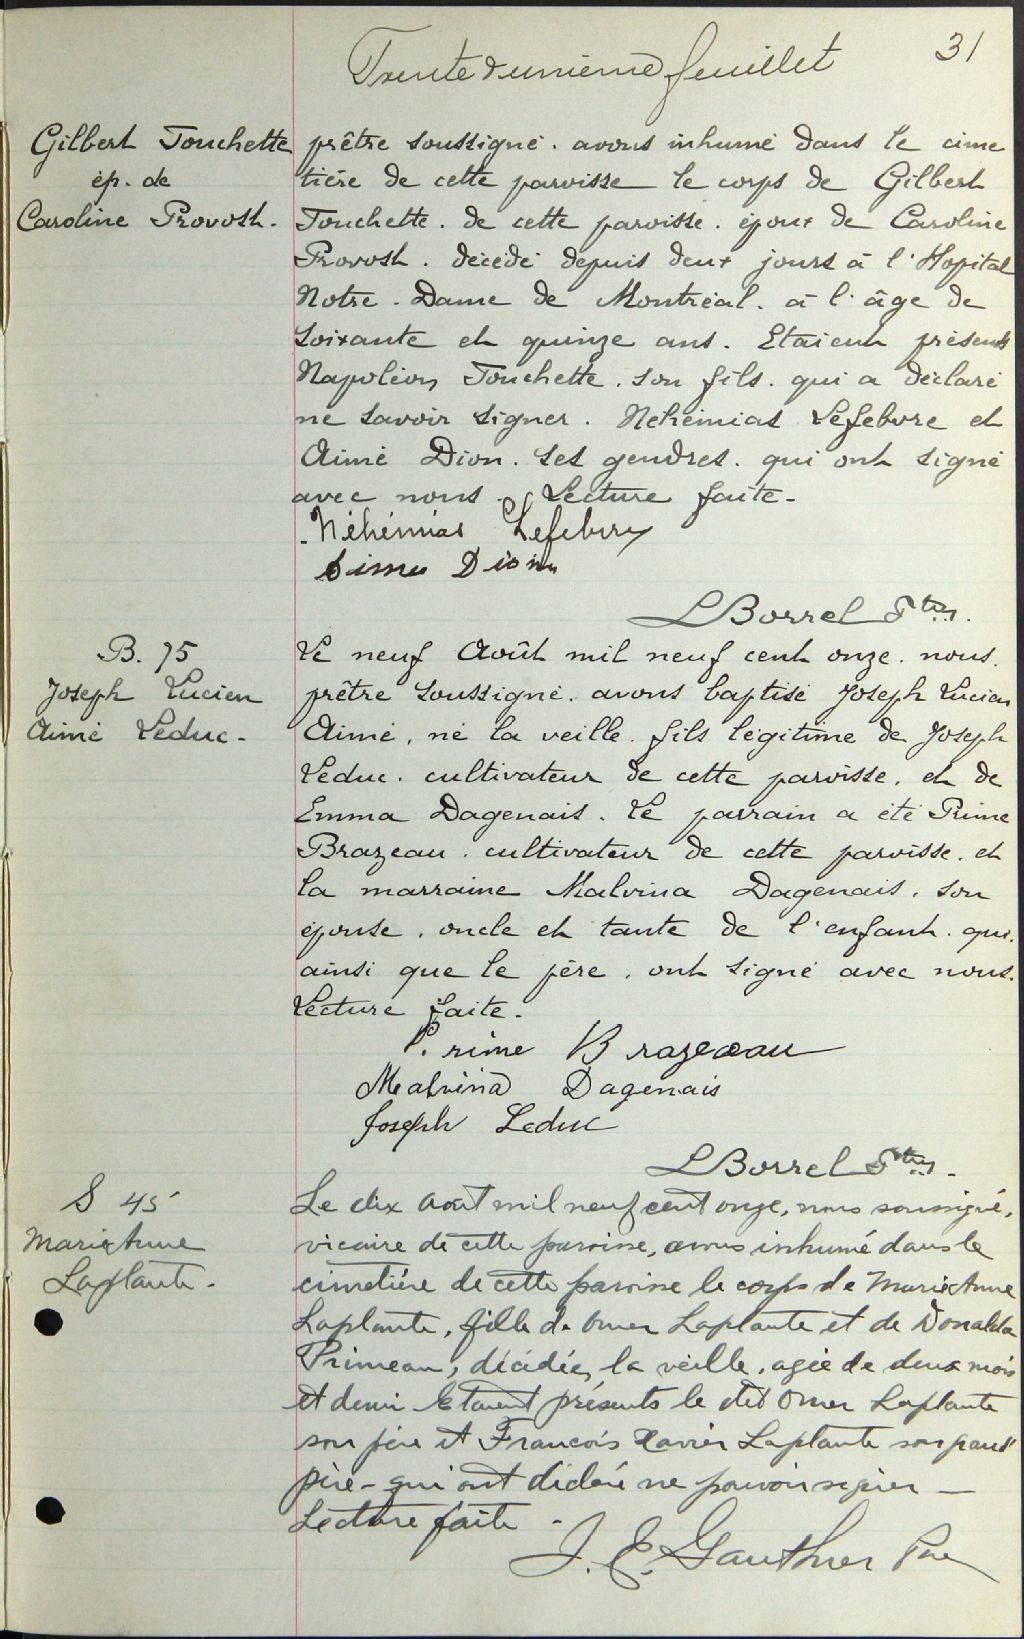 31
Trente & unième feuillet
Gilbert Touchette
ép. de
Caroline Provost.
prêtre soussigné. avons inhumé dans le cime
tière de cette paroisse le corps de Gilbert
Touchette. de cette paroisse. époux de Caroline
Provost. décédé depuis deux jours à l'Hopital
Notre-Dame de Montréal. à l'âge de
soixante et quinze ans. Etaient présents
Napoléon Touchette. son fils. qui a déclaré
ne savoir signer. Néhémias Lefebvre et
Aimé Dion. ses gendres. qui ont signé
avec nous. Lecture faite-
Néhémias Lefebvre
Aimé Dion
L Borrel Ptre.
B. 75
Joseph Lucien
Aimé Leduc-
Le neuf Août mil neuf cent onze. nous.
prêtre soussigné. avons baptisé Joseph Lucien
Aimé, né la veille. fils légitime de Joseph
Leduc. cultivateur de cette paroisse. et de
Emma Dagenais. Le parrain a été Prime
Brazeau. cultivateur de cette paroisse. et
la marraine Malvina Dagenais. son
épouse. oncle et tante de l'enfant. qui.
ainsi que le père. ont signé avec nous.
Lecture faite.
Prime Brazeau
Malvina Dagenais
Joseph Leduc
L Borrel Ptre.
S 45
Marie Anne
Laplante-
Le dix Août mil neuf cent onze, nous soussigné,
vicaire de cette paroisse, avons inhumé dans le
cimetière de cette paroisse le corps de Marie Anne
Laplante, fille de Omer Laplante et de Donalda
Primeau, décédée, la veille, agée de deux mois
et demi Etaient présents le dit Omer Laplante
son père et Francois Xavier Laplante son grand
père - qui ont déclaré ne pouvoir signer -
Lecture faite -
J. E. Gauthier Ptre